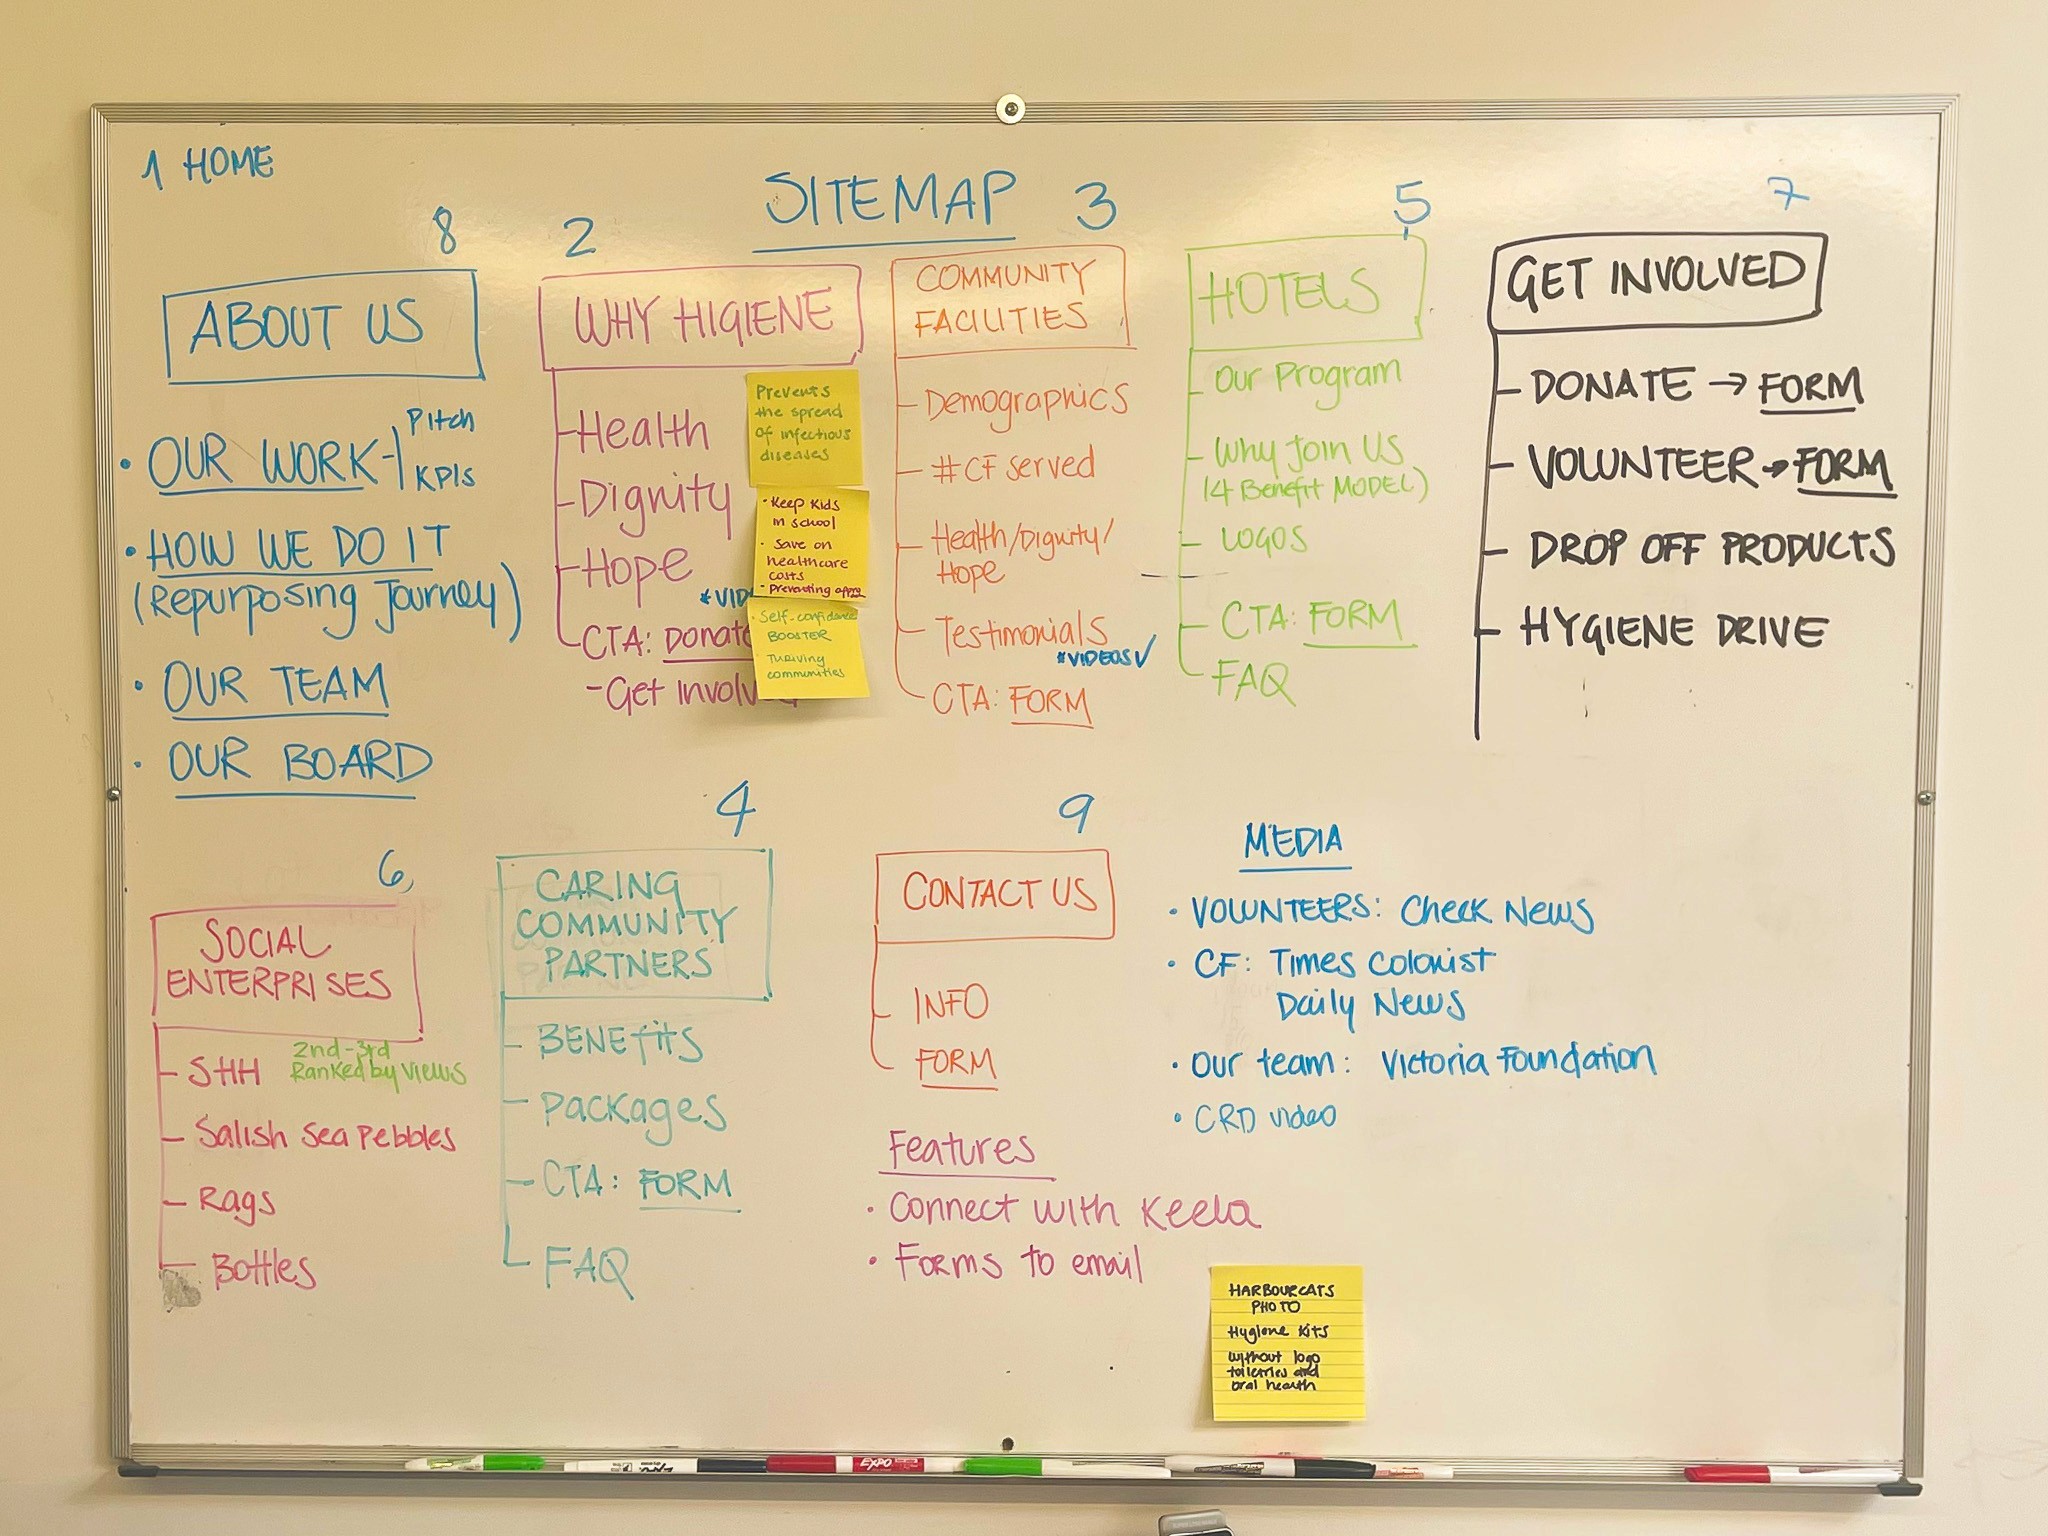 1 HOME
SITEMAP
8
ABOUT US
• OUR WORK - Pitch
KPIs
• HOW WE DO IT
(Repurposing Journey)
• OUR TEAM
• OUR BOARD
2
WHY HIGIENE
Health
Dignity
Hope
*VID
CTA: Donate
- Get Involv
Prevents
the spread
of infectious
diseases
• Keep Kids
in school
• Save on
healthcare
costs
• Preventing
• Self-confidence
BOOSTER
• Thriving
communities
3
COMMUNITY
FACILITIES
Demographics
# CF served
Health/Dignity/
Hope
Testimonials
*VIDEOS ✓
CTA: FORM
5
HOTELS
Our Program
Why Join US
(4 Benefit MODEL)
LOGOS
CTA: FORM
FAQ
7
GET INVOLVED
DONATE → FORM
VOLUNTEER → FORM
DROP OFF PRODUCTS
HYGIENE DRIVE
6
SOCIAL
ENTERPRISES
SHH
2nd-3rd
Ranked by Views
Salish Sea Pebbles
Rags
Bottles
4
CARING
COMMUNITY
PARTNERS
BENEfits
Packages
CTA: FORM
FAQ
9
CONTACT US
INFO
FORM
Features
• Connect with Keela
• Forms to email
MEDIA
• VOLUNTEERS: Check News
• CF: Times Colonist
Daily News
• Our team: Victoria Foundation
• CRD video
HARBOURCATS
PHOTO
Hygiene Kits
without logo
toiletries and
oral health
EXPO